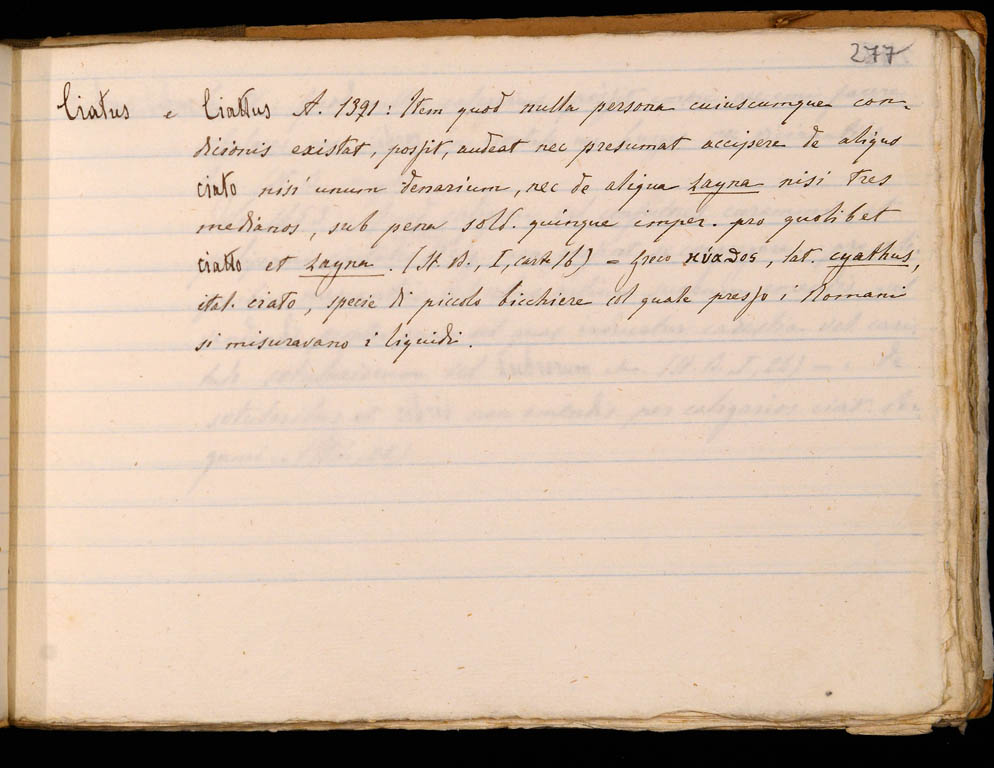 277
Ciatus e Ciattus A. 1391: Item quod nulla persona cuiuscumque con-
dicionis existat, possit, audeat nec presumat accipere de aliquo
ciato nisi unum denarium, nec de aliqua zayna nisi tres
medianos, sub pena sold. quinque imper. pro quolibet
ciatto et zayna. (St. B., I, carte 16) = Greco κύαθος, lat. cyathus,
ital. ciato, specie di piccolo bicchiere col quale presso i Romani
si misuravano i liquidi.